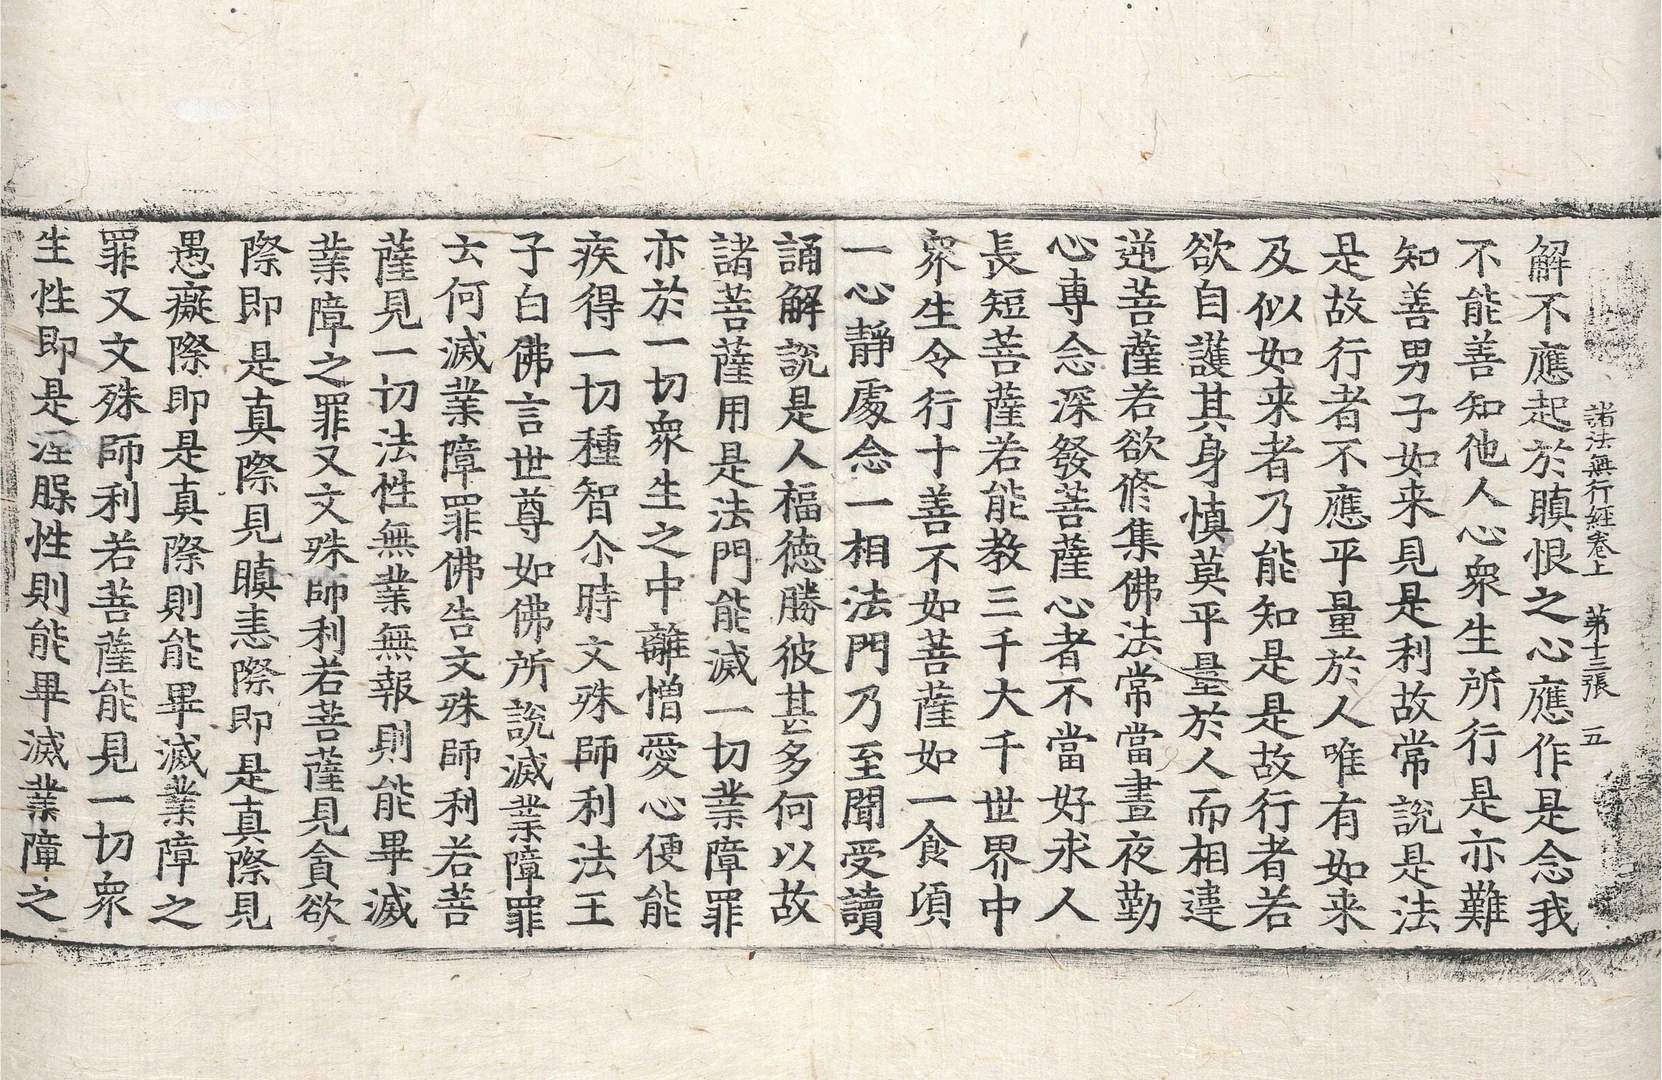 諸法無行經卷上 第十三張 五
解不應起於瞋恨之心應作是念我
不能善知他人心衆生所行是亦難
知善男子如来見是利故常說是法
是故行者不應平量於人唯有如来
及似如来者乃能知是是故行者若
欲自護其身慎莫平量於人而相違
逆菩薩若欲修集佛法常當晝夜勤
心專念深發菩薩心者不當好求人
長短菩薩若能教三千大千世界中
衆生令行十善不如菩薩如一食頃
一心靜處念一相法門乃至聞受讀
誦解說是人福德勝彼甚多何以故
諸菩薩用是法門能滅一切業障罪
亦於一切衆生之中離憎愛心便能
疾得一切種智尒時文殊師利法王
子白佛言世尊如佛所說滅業障罪
云何滅業障罪佛告文殊師利若菩
薩見一切法性無業無報則能畢滅
業障之罪又文殊師利若菩薩見貪欲
際即是真際見瞋恚際即是真際見
愚癡際即是真際則能畢滅業障之
罪又文殊師利若菩薩能見一切衆
生性即是涅槃性則能畢滅業障之